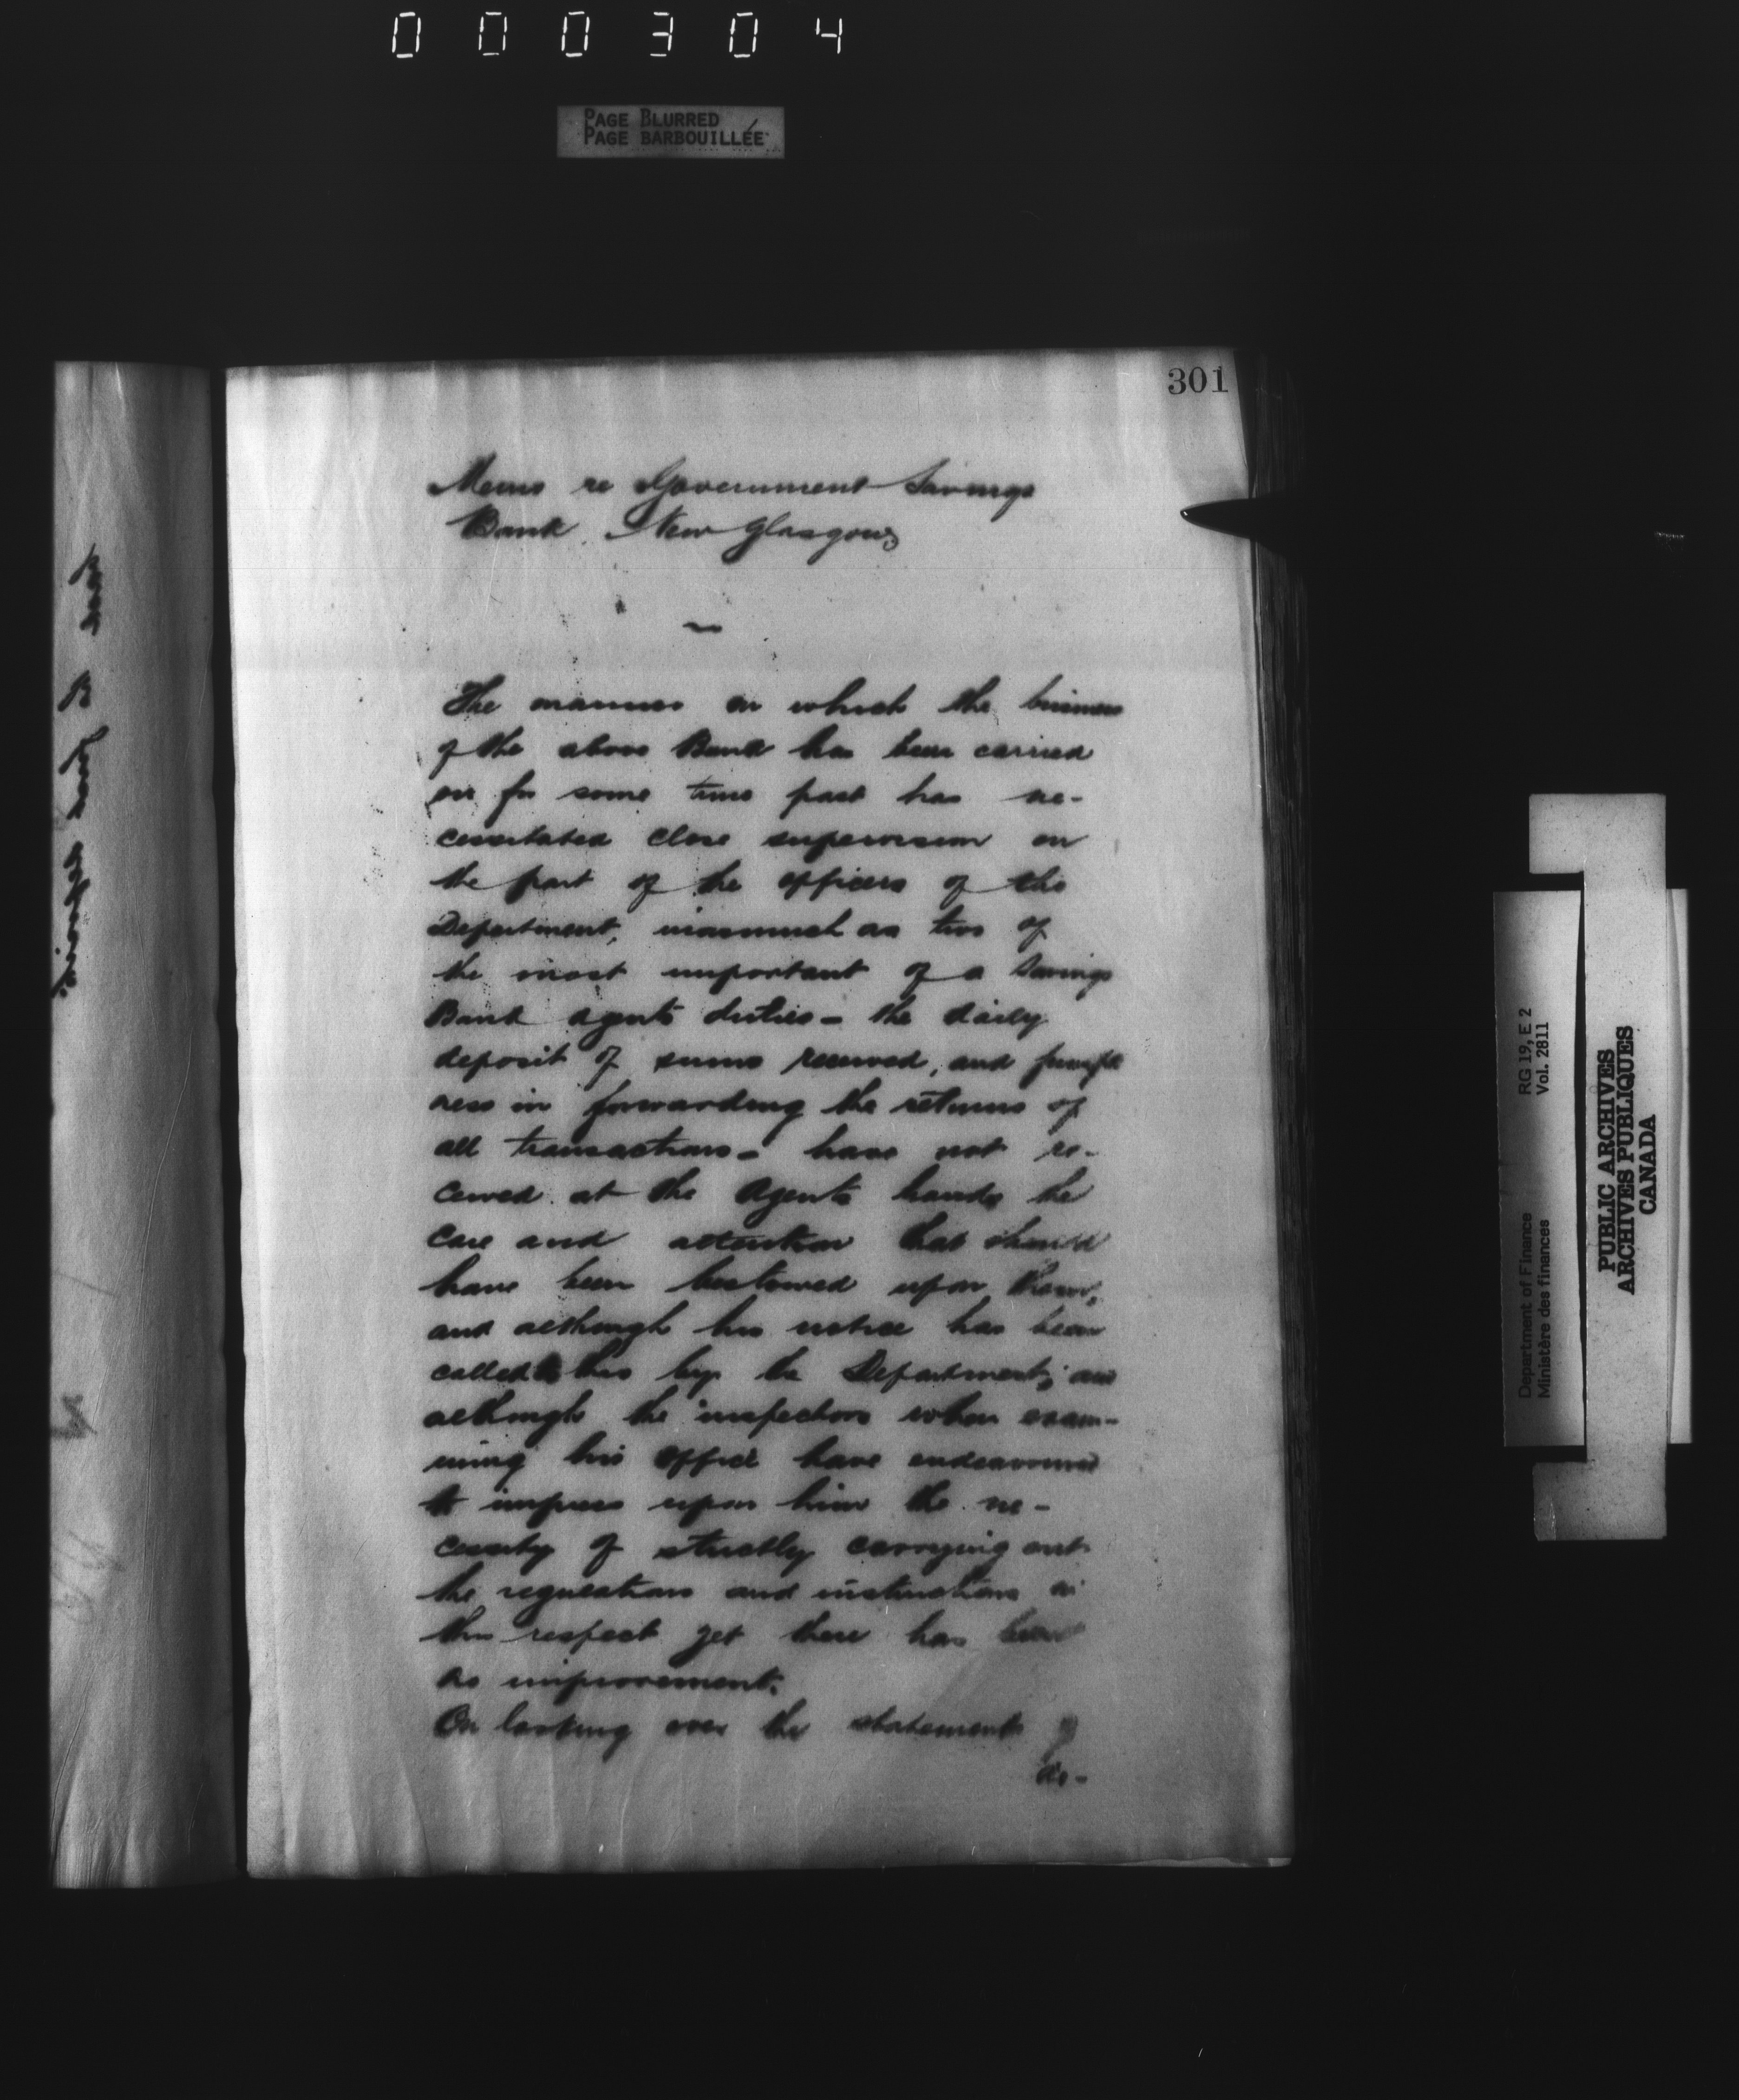 000304
PAGE BLURRED
PAGE BARBOUILLÉE
301
Memo re Government Savings
Bank New Glasgow
The manner in which the business
of the above Bank has been carried
on for some time past has ne-
cessitated close supervision on
the part of the officers of this
Department, inasmuch as two of
the most important of a Savings
Bank agents duties - the daily
deposit of sums received, and prompt
ness in forwarding the returns of
all transactions - have not re-
ceived at the Agents hands the
care and attention that should
have been bestowed upon them,
and although his notice has been
called to this by the Department, and
although the inspectors when exam-
ining his office have endeavoured
to impress upon him the ne-
cessity of strictly carrying out
the regulations and instructions in
this respect yet there has been
no improvement.
On looking over the statements of
de-
RG 19, E 2
Vol. 2811
Department of Finance
Ministère des finances
PUBLIC ARCHIVES
ARCHIVES PUBLIQUES
CANADA